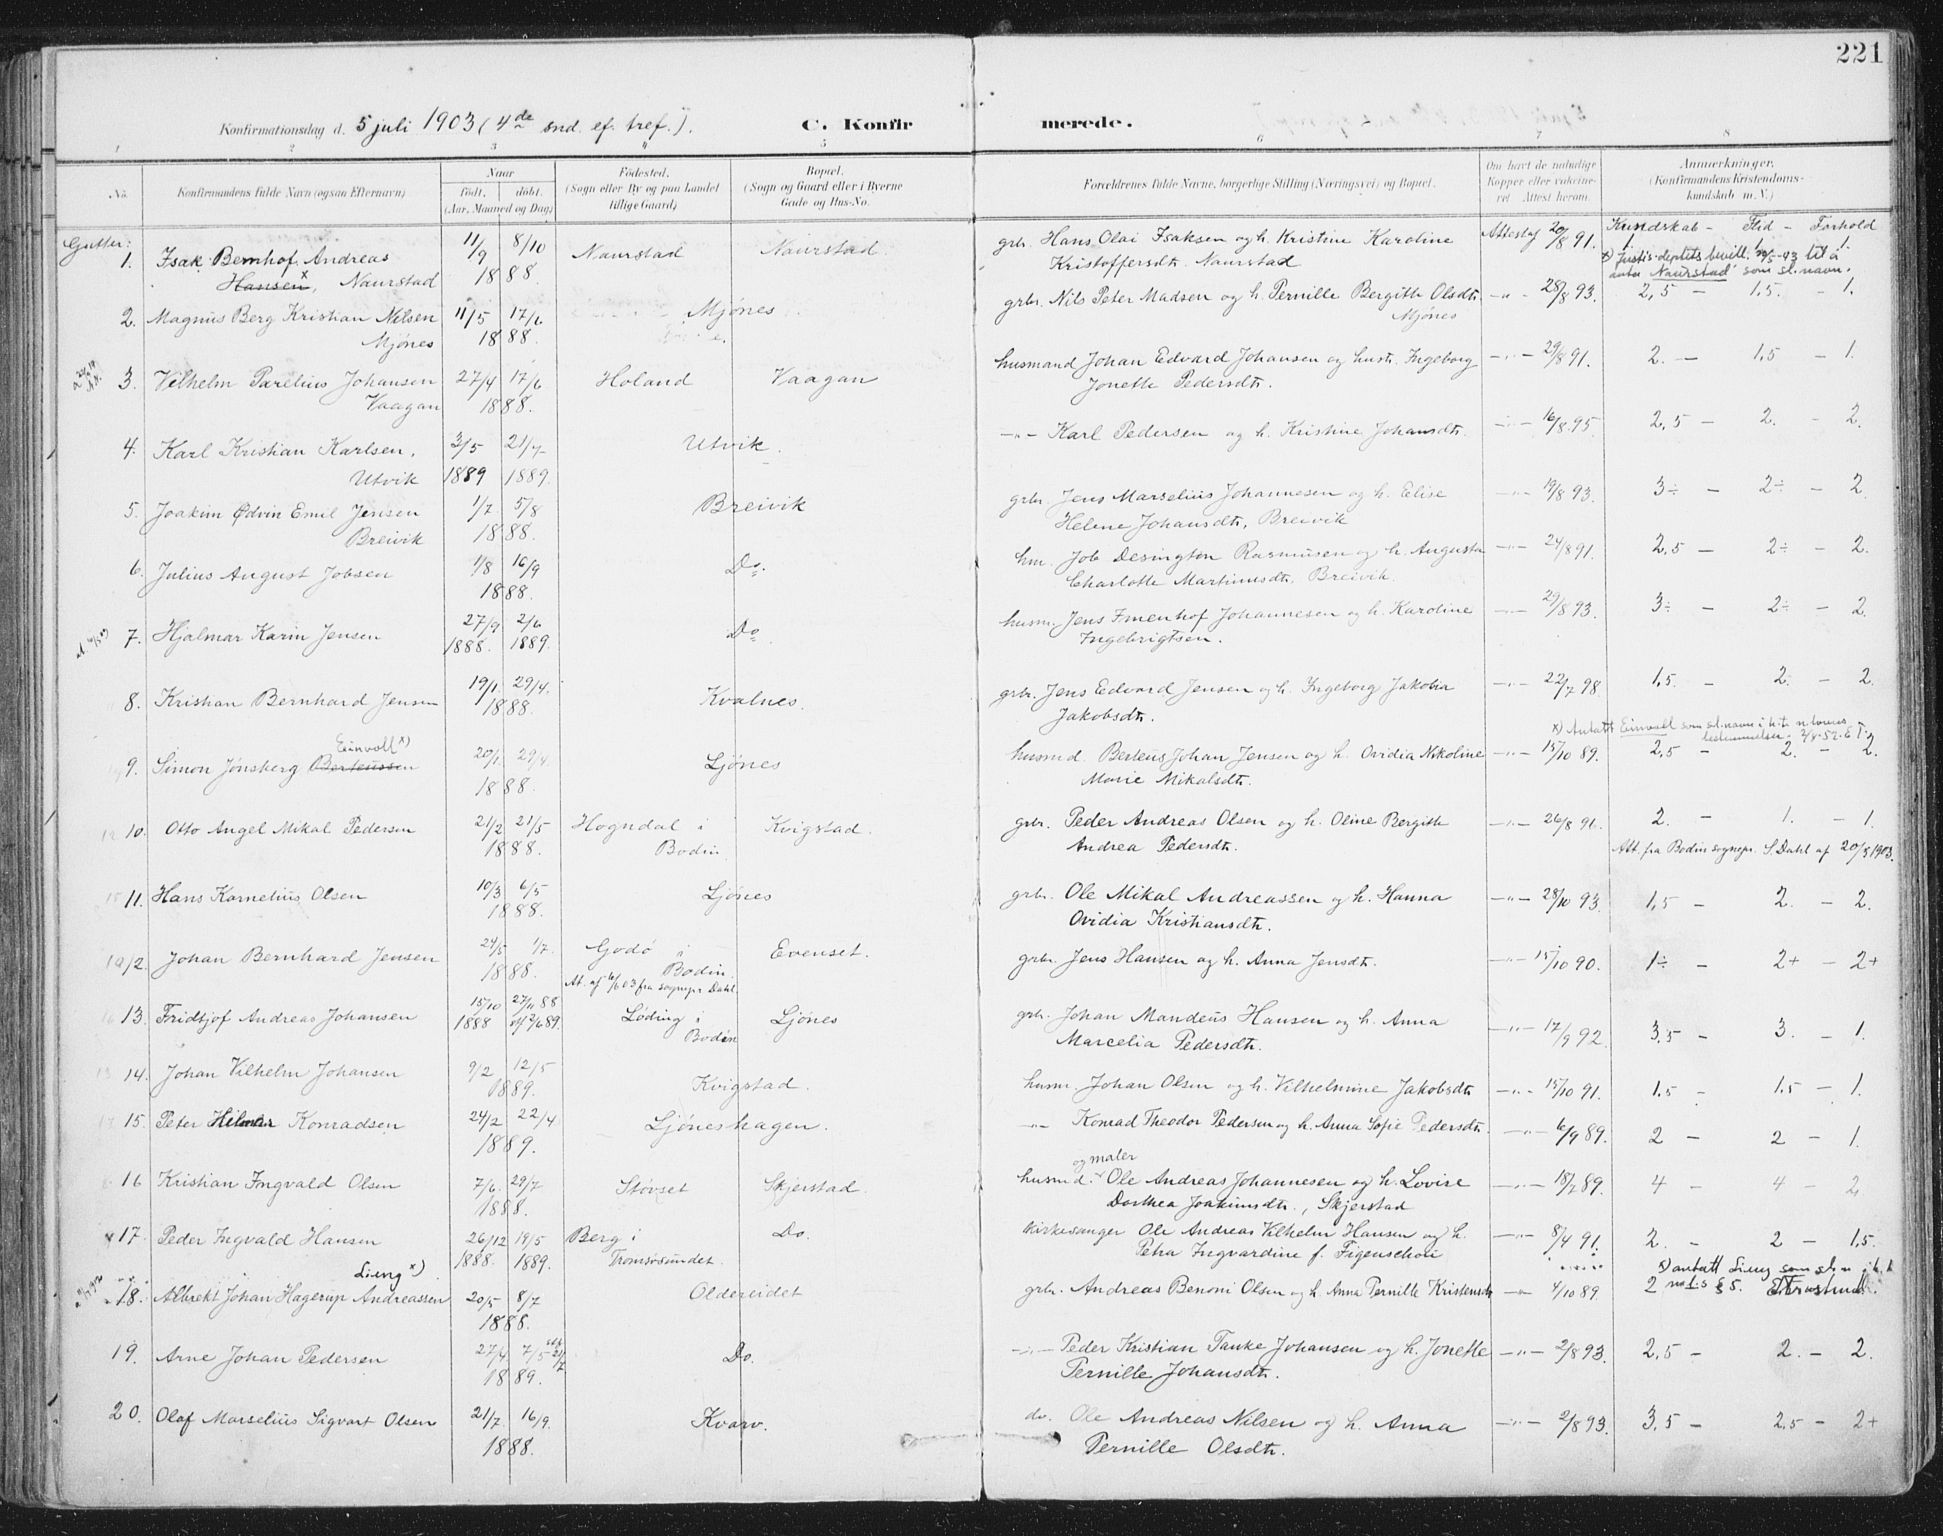 221
Konfirmationsdag d. 5 juli 1903 (4de snd. ef. tref.). C. Konfirmerede.
1 2 3 4 5 6 7 8
No. Konfirmandens fulde Navn (ogsaa Efternavn) Naar født, døbt. (Aar, Maaned og Dag) Fødested. (Sogn eller By og paa Landet tillige Gaard) Bopæl. (Sogn og Gaard eller i Byerne Gade og Hus-No. Forældrenes fulde Navne, borgerlige Stilling (Næringsvei) og Bopæl. Om havt de naturlige Kopper eller vaccineret. Attest herom. Anmerkninger. (Konfirmandens Kristendomskundskab m. V.)
Gutter: Kundskab - Flid - Forhold
1. Isak Bernhof Andreas 11/9 8/10 Naurstad Naurstad grbr. Hans Olai Isaksen og h. Kristine Karoline Attest af 20/8 91. 1 1 1.
Hansen x, Naurstad 1888. Kristoffersdt. Naurstad x) Justis-deptets bevill. til å
anta "Naurstad" som sl.navn.
2. Magnus Berg Kristian Nilsen 11/5 17/6 Mjönes grbr. Nils Peter Madsen og h. Pernille Bergitte Olsdt. -"- 28/8 93. 2,5 - 1.5. - 1.
Mjönes 1888. Mjönes
3. Vilhelm Parelius Johansen 27/4 17/6 Holand Vaagan husmand Johan Edvard Johansen og hustr. Ingeborg -"- 29/8 91. 2. - 1,5 - 1.
Vaagan 1888. Jonette Pedersdt.
4. Karl Kristian Karlsen, 3/5 21/7 Utvik. -"- Karl Pedersen og h. Kristine Johansdt. -"- 16/8 95 2,5 - 2. - 2.
Utvik 1889 1889.
5. Joakim Ødvin Emil Jensen 1/7 5/8 Breivik grbr. Jens Marselius Johannesen og h. Elise -"- 19/8 93. 3÷ - 2÷ - 2.
Breivik 1888. Helene Johansdt, Breivik
6. Julius August Jobsen 1/8 16/9 Do. hm. Job Desington Rasmussen og h. Augusta -"- 24/8 91. 2,5 - 2÷ - 2.
1888. Charlotte Martinusdt. Breivik.
7. Hjalmar Karin Jensen 27/9 2/6 Do husm. Jens Imenhof Johannesen og h. Karoline -"- 29/8 93. 3÷ - 2÷ - 2.
1888. 1889. Ingebrigtsen.
8. Kristian Bernhard Jensen 19/1. 29/4. Kvalnes. grbr. Jens Edvard Jensen og h. Ingeborg Jakoba -"- 22/7 98. 1,5. - 2. - 2.
1888. Jakobsdt.
Einvoll x) x) Antatt Einvoll som sl.navn i h.t. n.lovens
bestemmelser. 2/8-52. E.T.
9. Simon Jönsberg Berteussen 20/1. 29/4. Ljönes husmd. Berteus Johan Jensen og h. Ovidia Nikoline -"- 15/10 89. 2,5 - 2. - 2.
1888. Marie Mikalsdt.
10. Otto Angel Mikal Pedersen 21/2 21/5 Hogndal i Kvigstad. grbr. Peder Andreas Olsen og h. Oline Bergitte -"- 26/8 91. 2. - 1. - 1.
1888. Bodin Andrea Pedersdt. Att. fra Bodin sognepr. S. Dahl af 20/3 1903.
11. Hans Kornelius Olsen 10/3 6/5 Ljönes grbr. Ole Mikal Andreassen og h. Hanna -"- 28/10 93. 1,5 - 2. - 2.
1888. Ovidia Kristiansdt.
12. Johan Bernhard Jensen 24/5 1/7. Godö i Evenset. grbr. Jens Hansen og h. Anna Jensdt. -"- 15/10 90. 1÷ - 2+ - 2+
1888. Bodin.
At. af 6/6 03 fra sognepr Dahl.
13. Fridtjof Andreas Johansen 15/10 27/11 88 Löding i Ljönes grbr. Johan Mandeus Hansen og h. Anna -"- 17/9 92. 3,5 - 3. - 1.
1888 Bodin Marcelia Pedersdt.
14. Johan Vilhelm Johansen 9/2 12/5 Kvigstad. husm. Johan Olsen og h. Vilhelmine Jakobsdt -"- 15/10 91. 1.5 - 1.5 - 1.
1889.
15. Peter Hilmar Konradsen 24/2 22/4 Ljöneshagen. -"- Konrad Theodor Pedersen og h. Anna Sofie Pedersdt. -"- 6/9 89. 2 - 2 - 1.
1889.
og maler
16 Kristian Ingvald Olsen 7/6. 29/7 Stövset Skjerstad. husmd. Ole Andreas Johannesen og h. Lovise -"- 18/7 89. 4 - 4 - 2.
1888. Dorthea Joakimsdt., Skjerstad
17. Peder Ingvald Hansen 26/12 19/5 Berg i Do. Kirkesanger Ole Andreas Vilhelm Hansen og h. -"- 8/4 91. 2. - 2 - 1,5.
1888. 1889. Tromsösundet. Petra Ingvardine f. Figenschou
Lieng x) x) antatt Lieng som sl.n i h.t
18. Albrekt Johan Hagerup Andreassen 20/5 8/7 Oldereidet grbr. Andreas Benoni Olsen og h. Anna Pernille Kristensdt -"- 4/10 89. 2 § 5.
1888.
19. Arne Johan Pedersen 27/4 7/5 Do. -"- Peder Kristian Tanke Johansen og h. Jonette -"- 2/8 93. 2,5 - 2. - 2.
1889. Pernille Johansdt.
20. Olaf Marselius Sigvart Olsen 21/7. 16/9. Kvarv. do. Ole Andreas Nilsen og h. Anna -"- 2/8 93. 3,5 - 2,5 - 2+
1888. Pernille Olsdt.